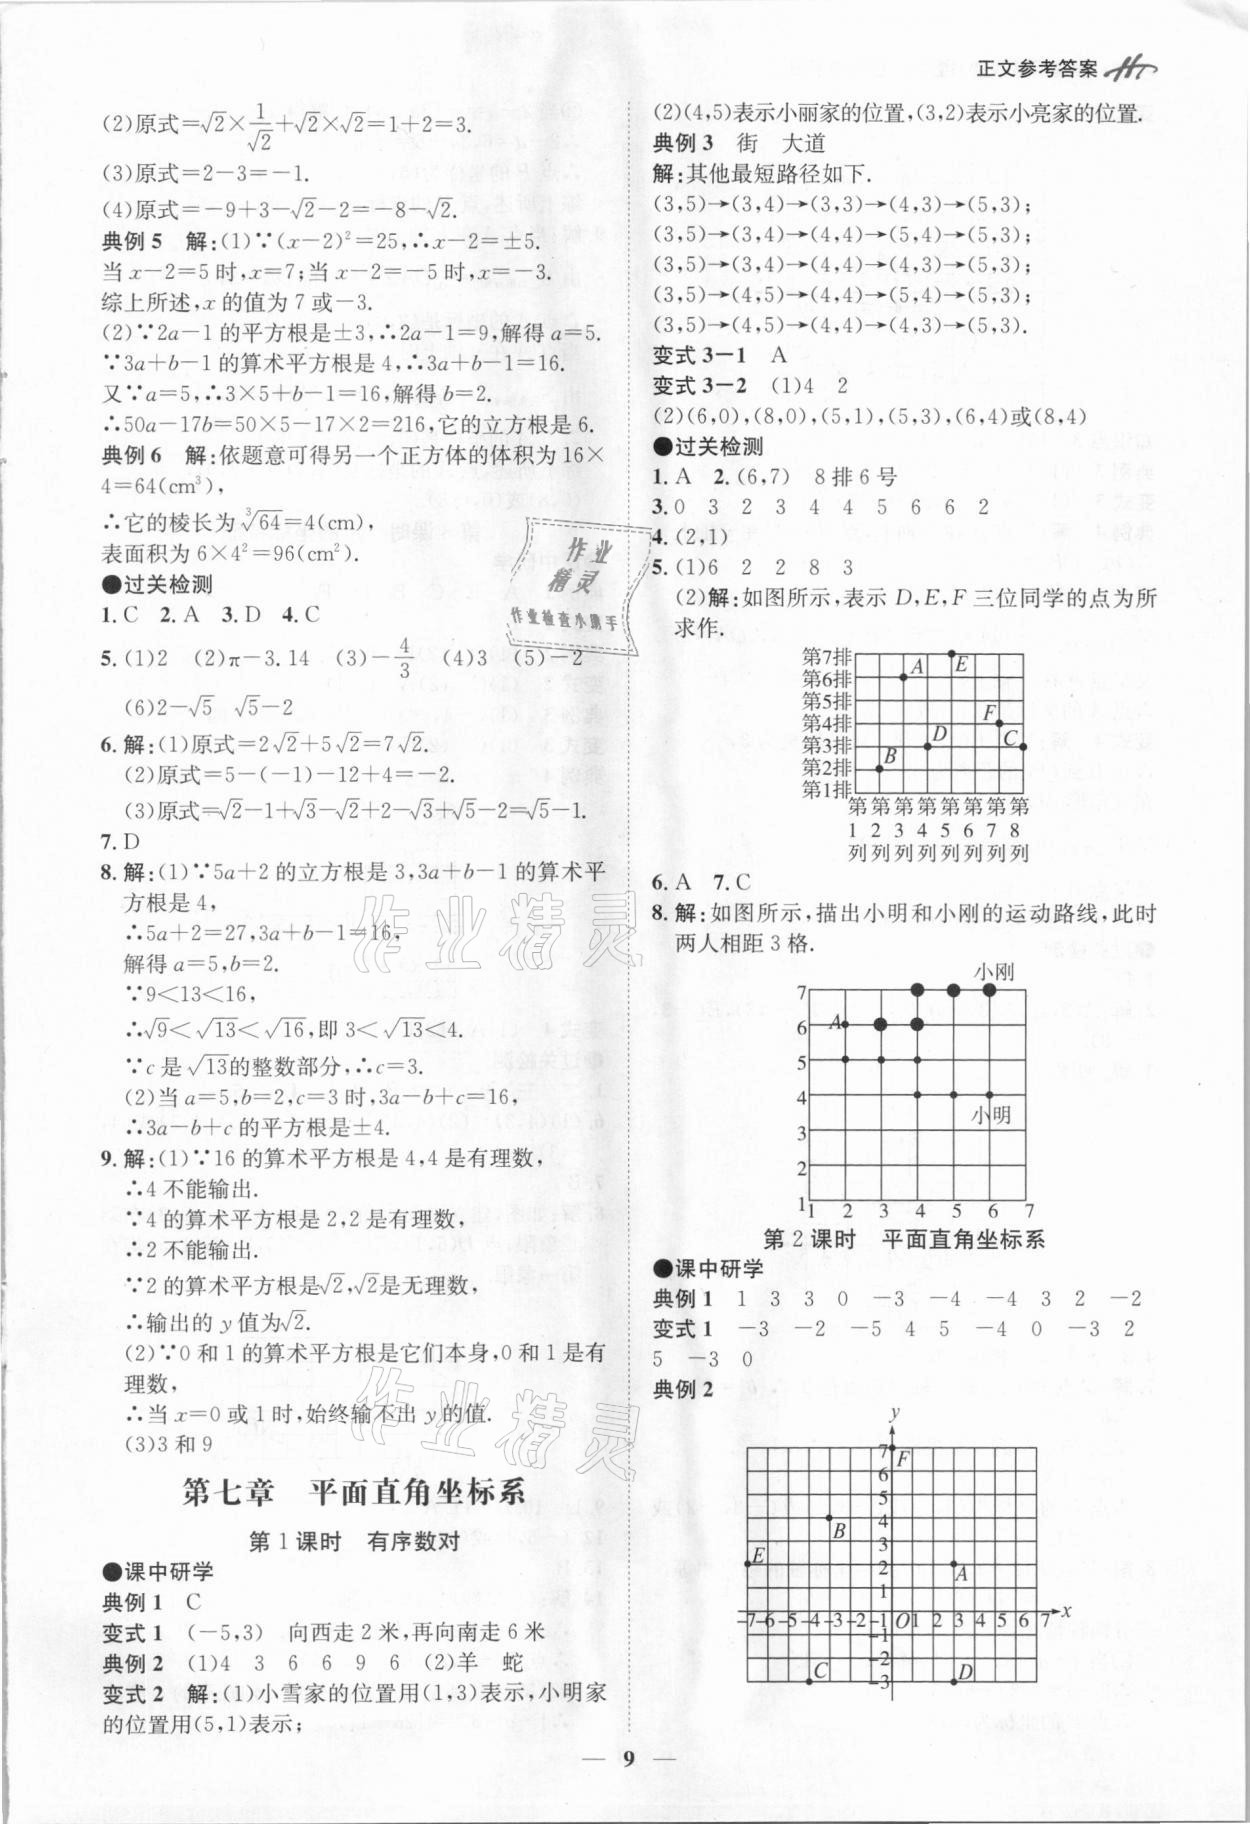 正文参考答案
(2)原式=√2×1/√2+√2×√2=1+2=3.
(3)原式=2-3=-1.
(4)原式=-9+3-√2-2=-8-√2.
典例5 解:(1)∵(x-2)²=25,∴x-2=±5.
当x-2=5时,x=7;当x-2=-5时,x=-3.
综上所述,x的值为7或-3.
(2)∵2a-1的平方根是±3,∴2a-1=9,解得a=5.
∵3a+b-1的算术平方根是4,∴3a+b-1=16.
又∵a=5,∴3×5+b-1=16,解得b=2.
∴50a-17b=50×5-17×2=216,它的立方根是6.
典例6 解:依题意可得另一个正方体的体积为16×
4=64(cm³),
∴它的棱长为∛64=4(cm),
表面积为6×4²=96(cm²).
●过关检测
1.C 2.A 3.D 4.C
5.(1)2 (2)π-3.14 (3)-4/3 (4)3 (5)-2
(6)2-√5 √5-2
6.解:(1)原式=2√2+5√2=7√2.
(2)原式=5-(-1)-12+4=-2.
(3)原式=√2-1+√3-√2+2-√3+√5-2=√5-1.
7.D
8.解:(1)∵5a+2的立方根是3,3a+b-1的算术平
方根是4,
∴5a+2=27,3a+b-1=16,
解得a=5,b=2.
∵9<13<16,
∴√9<√13<√16,即3<√13<4.
∵c是√13的整数部分,∴c=3.
(2)当a=5,b=2,c=3时,3a-b+c=16,
∴3a-b+c的平方根是±4.
9.解:(1)∵16的算术平方根是4,4是有理数,
∴4不能输出.
∵4的算术平方根是2,2是有理数,
∴2不能输出.
∵2的算术平方根是√2,√2是无理数,
∴输出的y值为√2.
(2)∵0和1的算术平方根是它们本身,0和1是有
理数,
∴当x=0或1时,始终输不出y的值.
(3)3和9
第七章 平面直角坐标系
第1课时 有序数对
●课中研学
典例1 C
变式1 (-5,3) 向西走2米,再向南走6米
典例2 (1)4 3 6 6 9 6 (2)羊 蛇
变式2 解:(1)小雪家的位置用(1,3)表示,小明家
的位置用(5,1)表示;
(2)(4,5)表示小丽家的位置,(3,2)表示小亮家的位置.
典例3 街 大道
解:其他最短路径如下.
(3,5)→(3,4)→(3,3)→(4,3)→(5,3);
(3,5)→(3,4)→(4,4)→(5,4)→(5,3);
(3,5)→(3,4)→(4,4)→(4,3)→(5,3);
(3,5)→(4,5)→(4,4)→(5,4)→(5,3);
(3,5)→(4,5)→(4,4)→(4,3)→(5,3).
变式3-1 A
变式3-2 (1)4 2
(2)(6,0),(8,0),(5,1),(5,3),(6,4)或(8,4)
●过关检测
1.A 2.(6,7) 8排6号
3.0 3 2 3 4 4 5 6 6 2
4.(2,1)
5.(1)6 2 2 8 3
(2)解:如图所示,表示D,E,F三位同学的点为所
求作.
第7排 E
第6排 A
第5排
第4排 F
第3排 D C
第2排 B
第1排
第 第 第 第 第 第 第 第
1 2 3 4 5 6 7 8
列 列 列 列 列 列 列 列
6.A 7.C
8.解:如图所示,描出小明和小刚的运动路线,此时
两人相距3格.
小刚
7
6 A
5
4
小明
3
2
1
1 2 3 4 5 6 7
第2课时 平面直角坐标系
●课中研学
典例1 1 3 3 0 -3 -4 -4 3 2 -2
变式1 -3 -2 -5 4 5 -4 0 -3 2
5 -3 0
典例2
y
7 F
6
5
4 B
3
2 E A
1
-7 -6 -5 -4 -3 -2 -1 O 1 2 3 4 5 6 7 x
-1
-2
-3 C D
作业
精灵
作业检查小助手
作业精灵
作业精灵
9